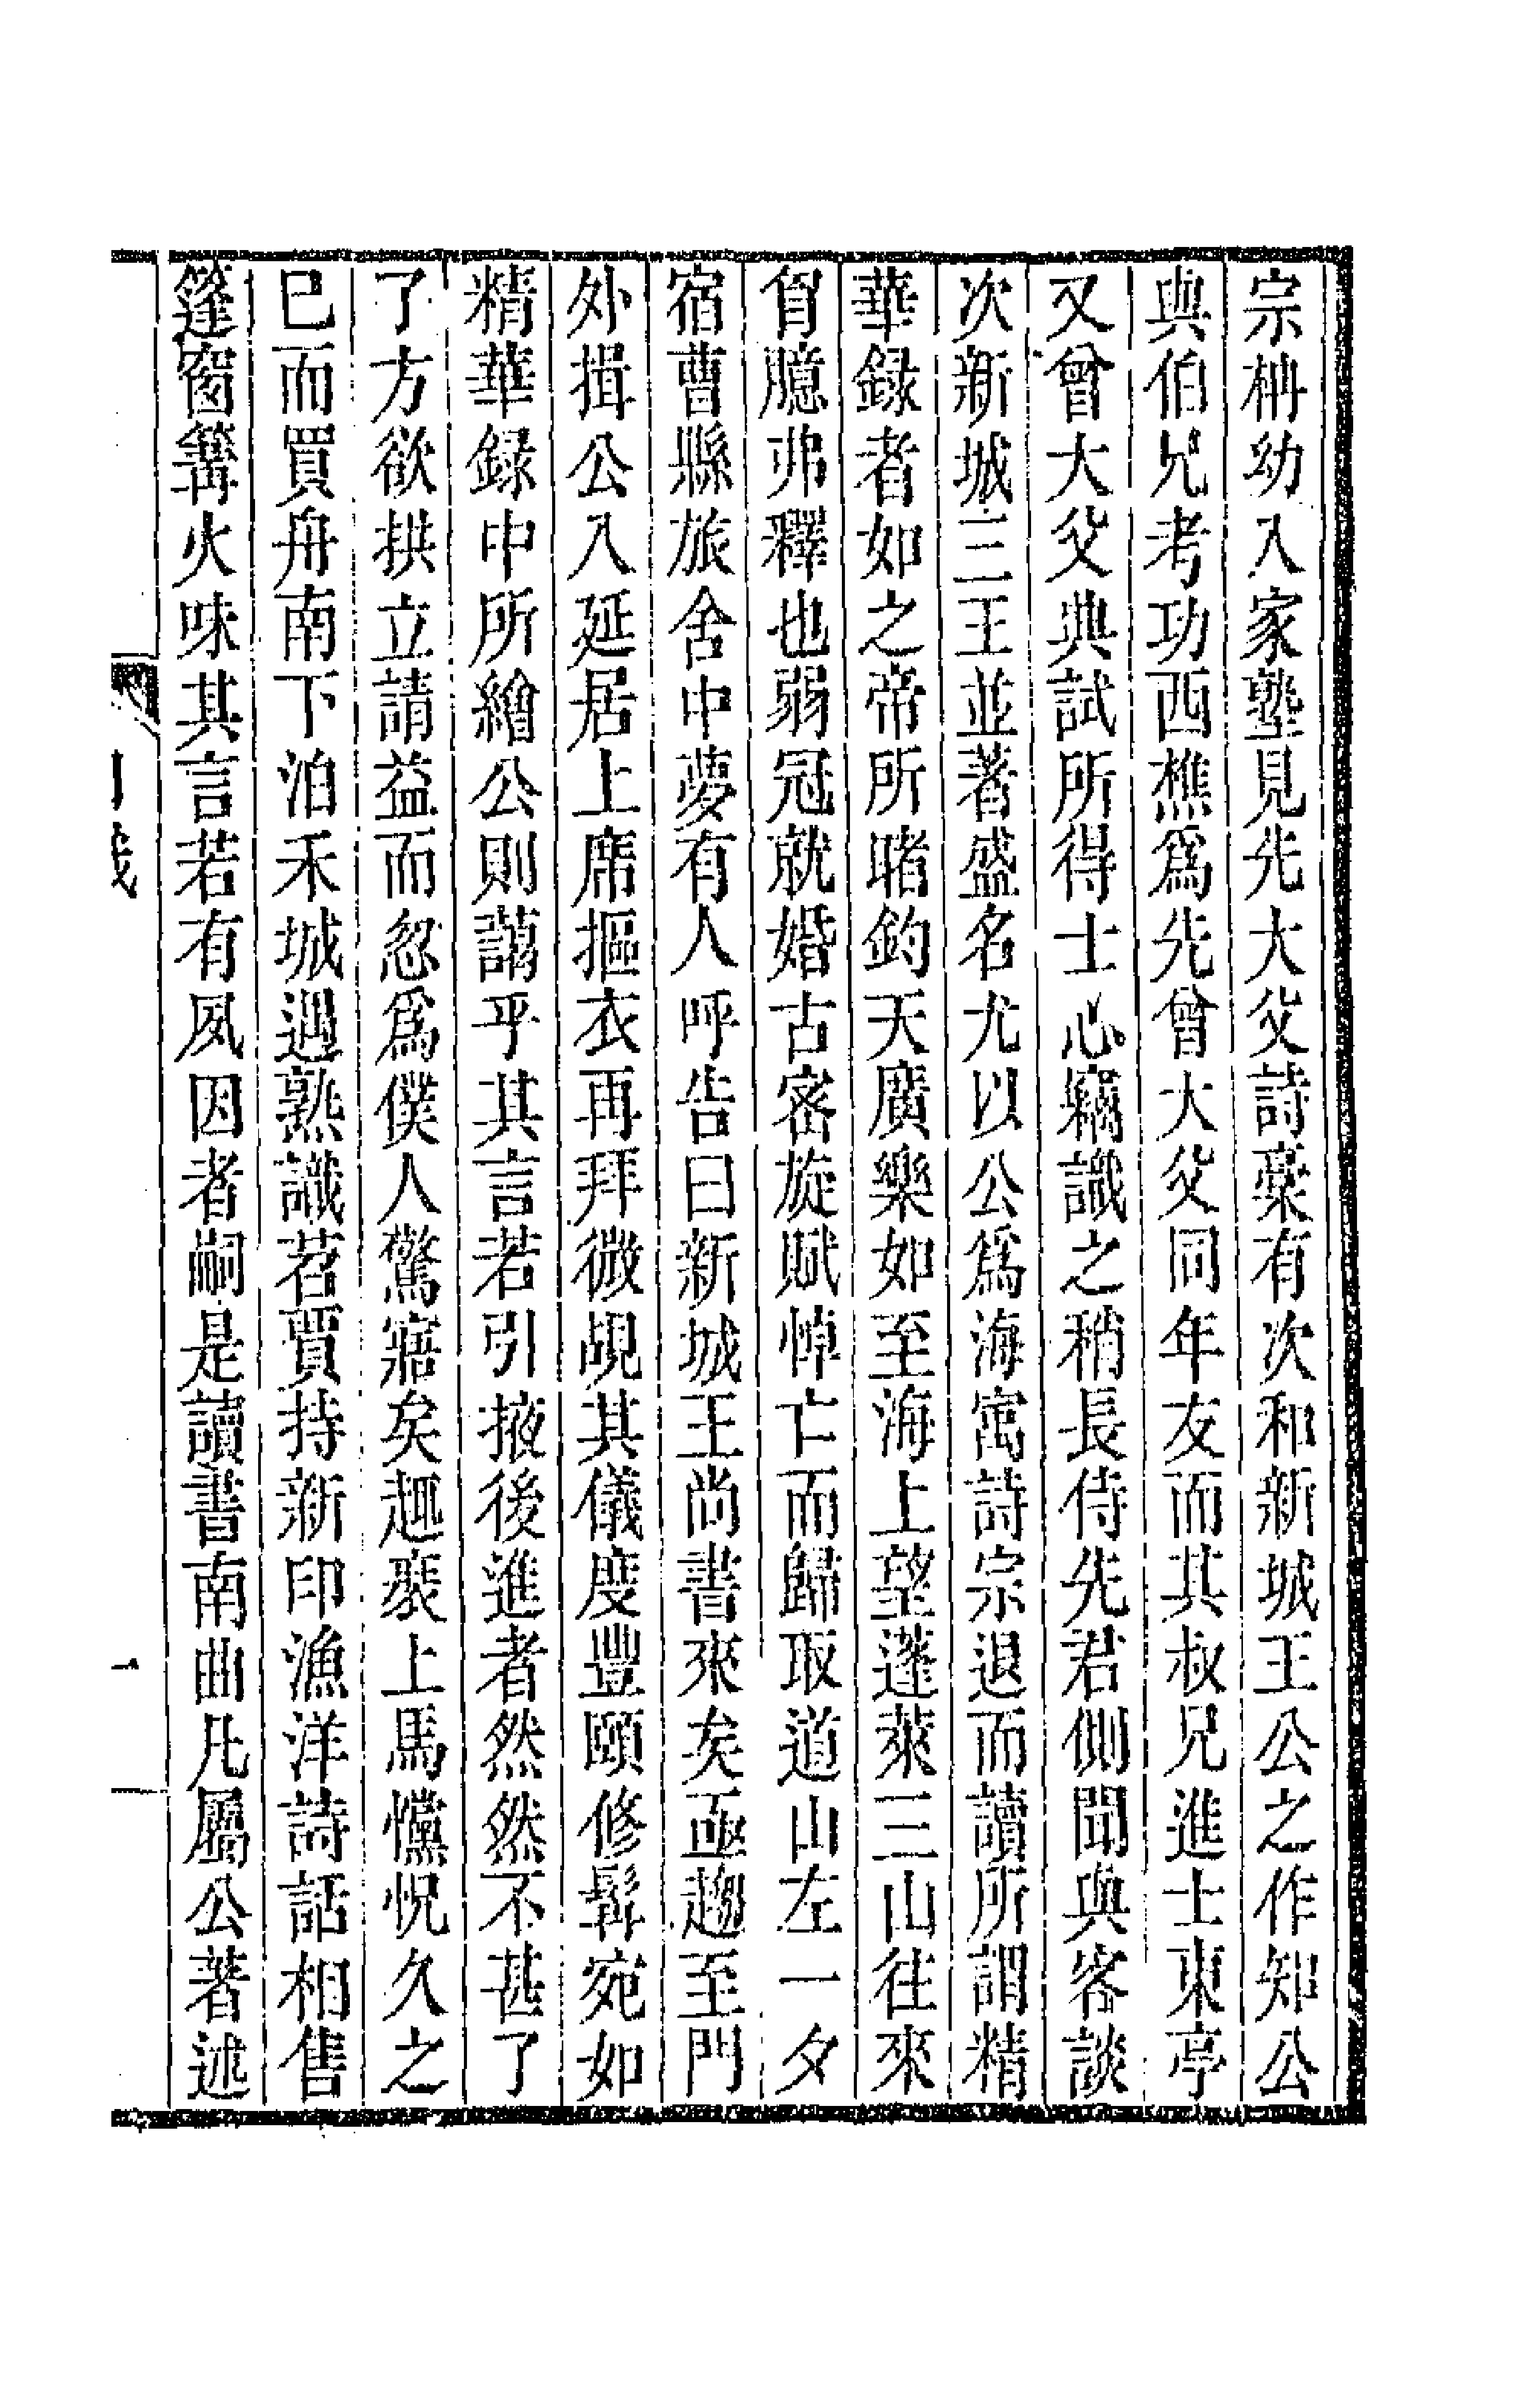 宗柟幼入家塾見先大父詩稾有次和新城王公之作知公
與伯兄考功西樵爲先曾大父同年友而其叔兄進士東亭
又曾大父典試所得士心竊識之稍長侍先君側聞與客談
次新城三王並著盛名尤以公爲海㝢詩宗退而讀所謂精
華録者如之帝所睹鈞天廣樂如至海上望蓬萊三山往來
胷臆弗釋也弱冠就婚古密旋賦悼亡而歸取道山左一夕
宿曹縣旅舍中夢有人呼告曰新城王尚書來矣亟趨至門
外揖公入延居上席摳衣再拜微覘其儀度豐頤修髯宛如
精華録中所繪公則藹乎其言若引掖後進者然然不甚了
了方欲拱立請益而忽爲僕人驚寤矣趣裝上馬戃怳久之
已而買舟南下泊禾城遇熟識苕賈持新印漁洋詩話相售
篷窗篝火味其言若有夙因者嗣是讀書南曲凡屬公著述
一